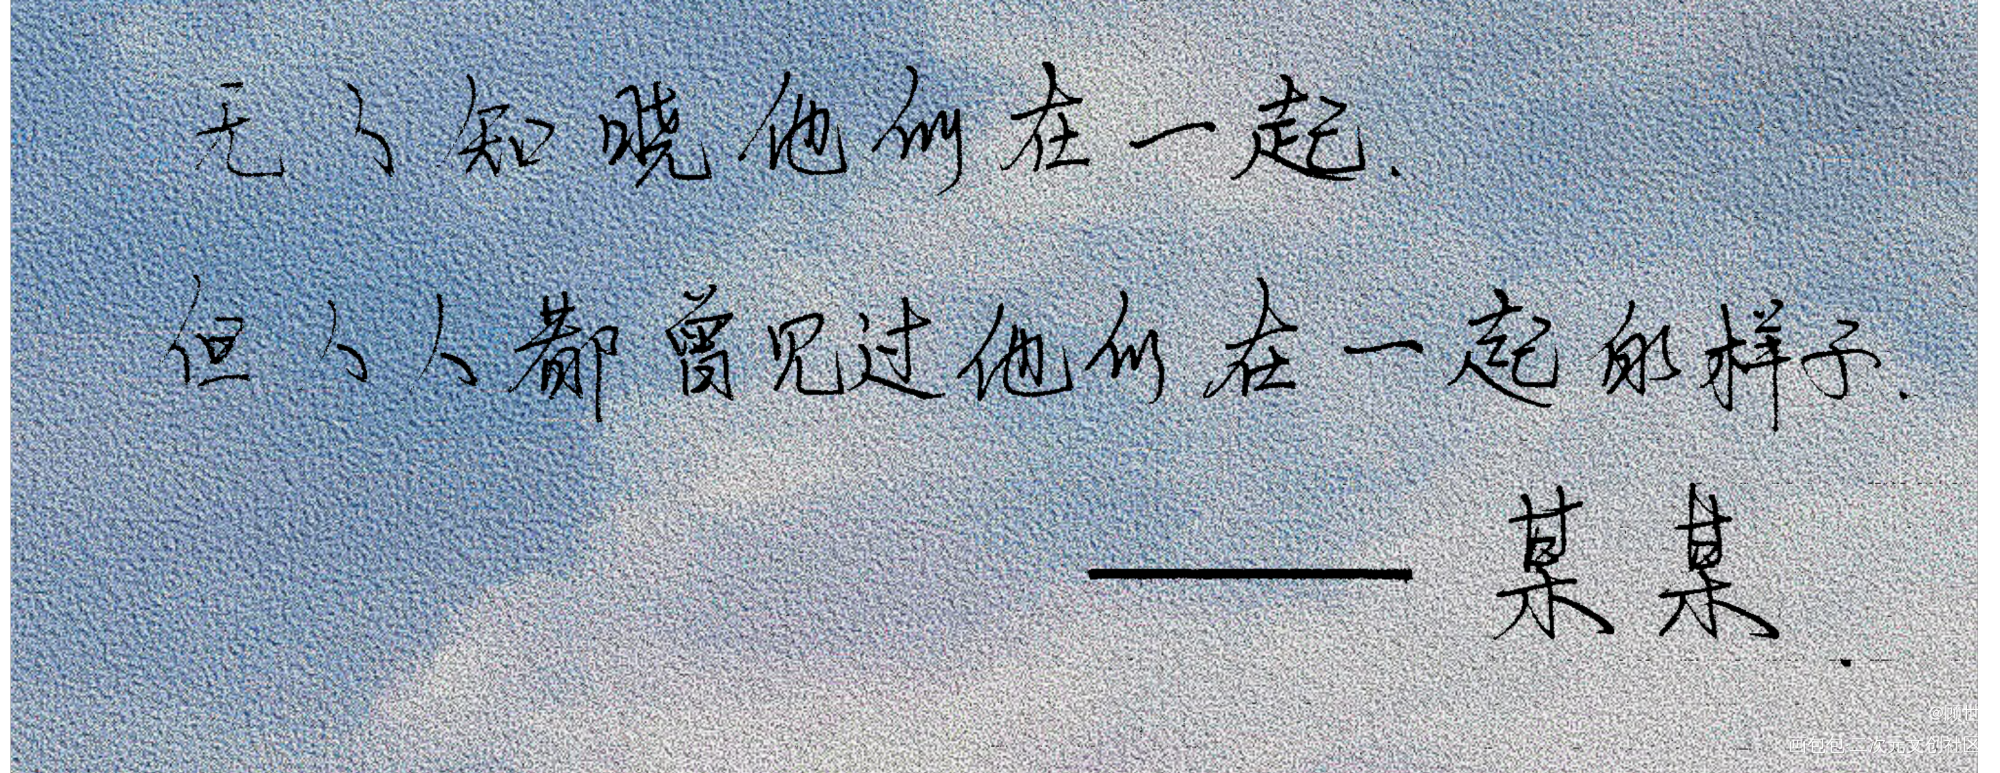 无人知晓他们在一起.
但人人都曾见过他们在一起的样子.
——某某.
画包包二次元文创社区